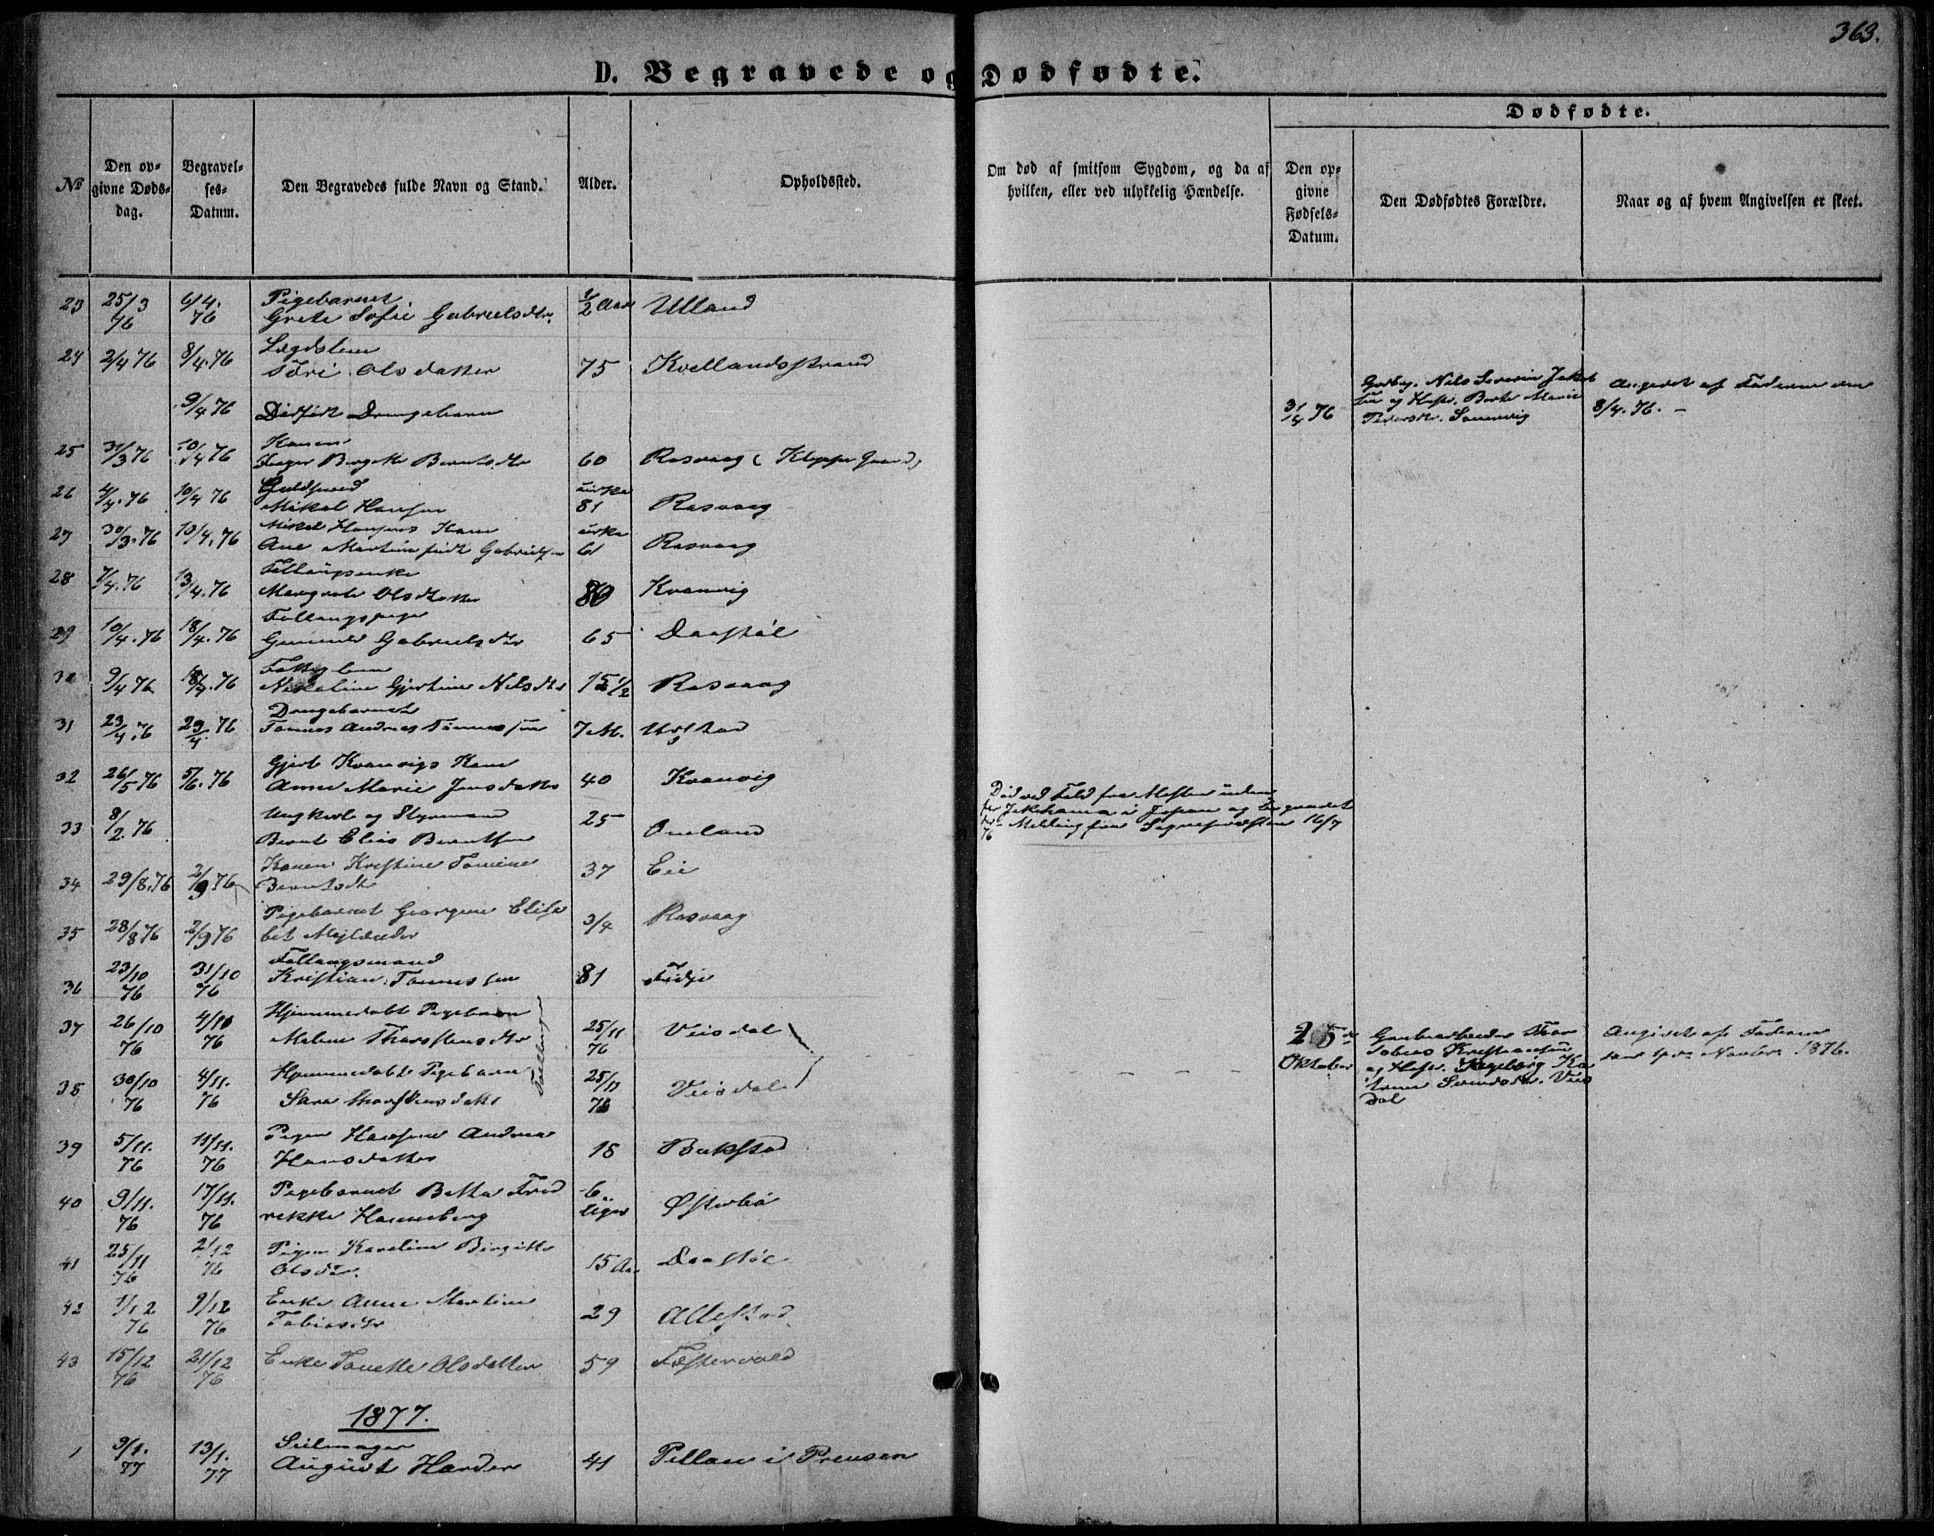 363.
D. Begravede og Dødfødte.
Dødfødte.
№
Den opgivne Dødsdag.
Begravelses-Datum.
Den Begravedes fulde Navn og Stand.
Alder.
Opholdssted.
Om død af smitsom Sygdom, og da af hvilken, eller ved ulykkelig Hændelse.
Den opgivne Fødsels-Datum.
Den Dødfødtes Forældre.
Naar og af hvem Angivelsen er skeet.
23 25/3 76 6/4. 76 Pigebarnet Grete Sofie Gabrielsdtr. 1/2 Aar Ulland
24 2/4 76 8/4.76 Lægdslem Siri Olsdatter 75 Kvellandsstrand
9/4 76 Dødfødt Drengebarn 3/4 76 Nils Severin Jakob og Hustr. Berte Marie Angivet af Faderen den 8/4.76.
25 31/3 76 10/4 76 Konen Inger Bergitte Berntsdtr 60 Rasvaag (Kleppe Gaard)
26 4/4.76 10/4 76 Guldsmed Mikal Hansen cirka 81 Rasvaag
27 30/3.76 13/4.76 Mikal Hansens Kone Ane Martine født Gabriels cirka 61 Rasvaag
28 7/4.76 13/4.76 Fellingsenke Margrete Olsdatter 80 Kvanvig
29 10/4.76 18/4.76 Gunnild Gabrielsdtr 65 Daastøl
30 9/4 76 18/4.76 Nikoline Gjertine Nilsdtr 15 1/2 Rasvaag
31 23/4.76 29/4.76 Drengebarnet Tønnes Andreas Tønnessen 7 M. Urstad
32 26/5 76 5/6.76 Gjert Kvanvigs Kone Anne Marie Jensdatter 40 Kvanvig
33 8/2.76 Ungkarl og Styrmand Bernt Elias Berntsen 25 Omland Død ved Fald fra Masten uden for Jokohama i Japan og begravet der Melding fra Sognepræsten 16/7 76
34 29/8.76 2/9 76 Konen Kristine Tomine Berntsdtr 37 Eie
35 28/8 76 2/9 76 Pigebarnet Georgine Elisabet Mejlænder 3/4 Rasvaag
36 23/10 76 31/10 76 Kristian Tønnessen 81 Fidje
37 26/10 76 4/10 76 Hjemmedøbt Pigebarn Malene Thorstensdtr Tvillinger 25/11 76 Veisdal
25de Oktober Tobias Kristiansen og Hustr. Ingeborg Veisdal Angivet af Faderen den 4de November 1876.
38 30/10 76 4/11. 76 Hjemmedøbt Pigebarn Sara Thorstensdatter 25/10 76 Veisdal
39 5/11. 76 11/11. 76 Pigen Hansine Andrea Hansdatter 18 Bakstad
40 9/11. 76 17/11. 76 Pigebarnet Betta Fredrikke Hanneberg 6 Uger Østerbø
41 25/11 76 2/12 76 Pigen Karoline Birgitte Olsdtr. 15 Aar Daastøl
42 1/12 76 9/12 76 Enke Anne Martine Tobiasdtr 29 Allestad
43 15/12 76 21/12 76 Enke Tonette Olsdatter 59 Fæstervold
1877.
1 9/1. 77 13/1. 77 Seilmager August Harder 41 Pillau i Preusen